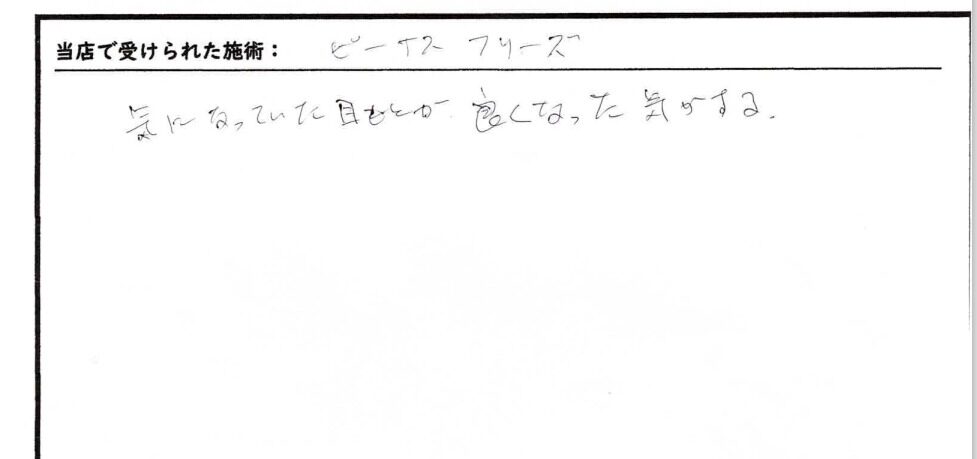 当店で受けられた施術： ビーナスフリーズ
気になっていた目もとが良くなった気がする.